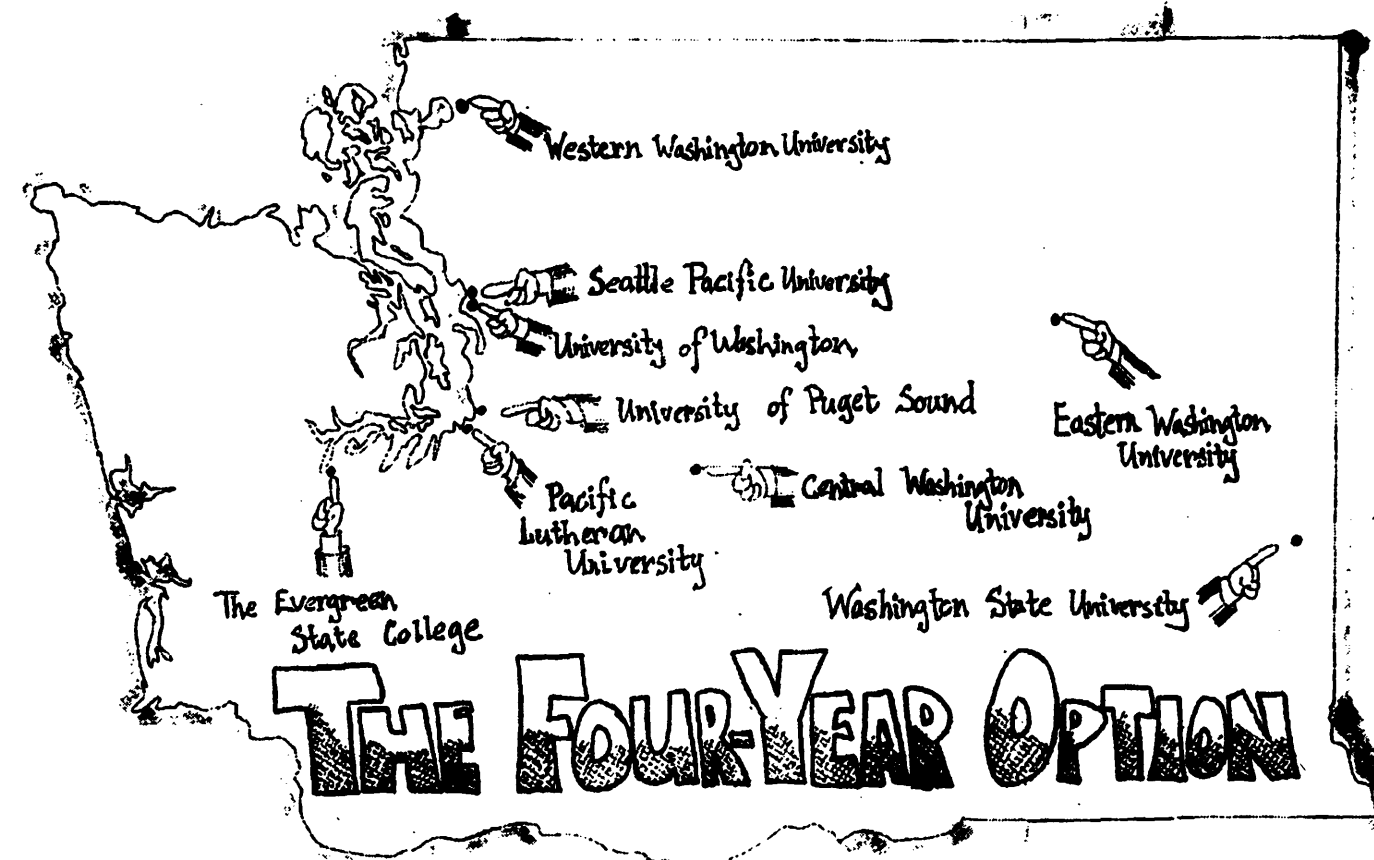 Western Washington University
Seattle Pacific University
University of Washington
University of Puget Sound
Eastern Washington
University
Central Washington
University
Pacific
Lutheran
University
The Evergreen
State College
Washington State University
THE FOUR-YEAR OPTION